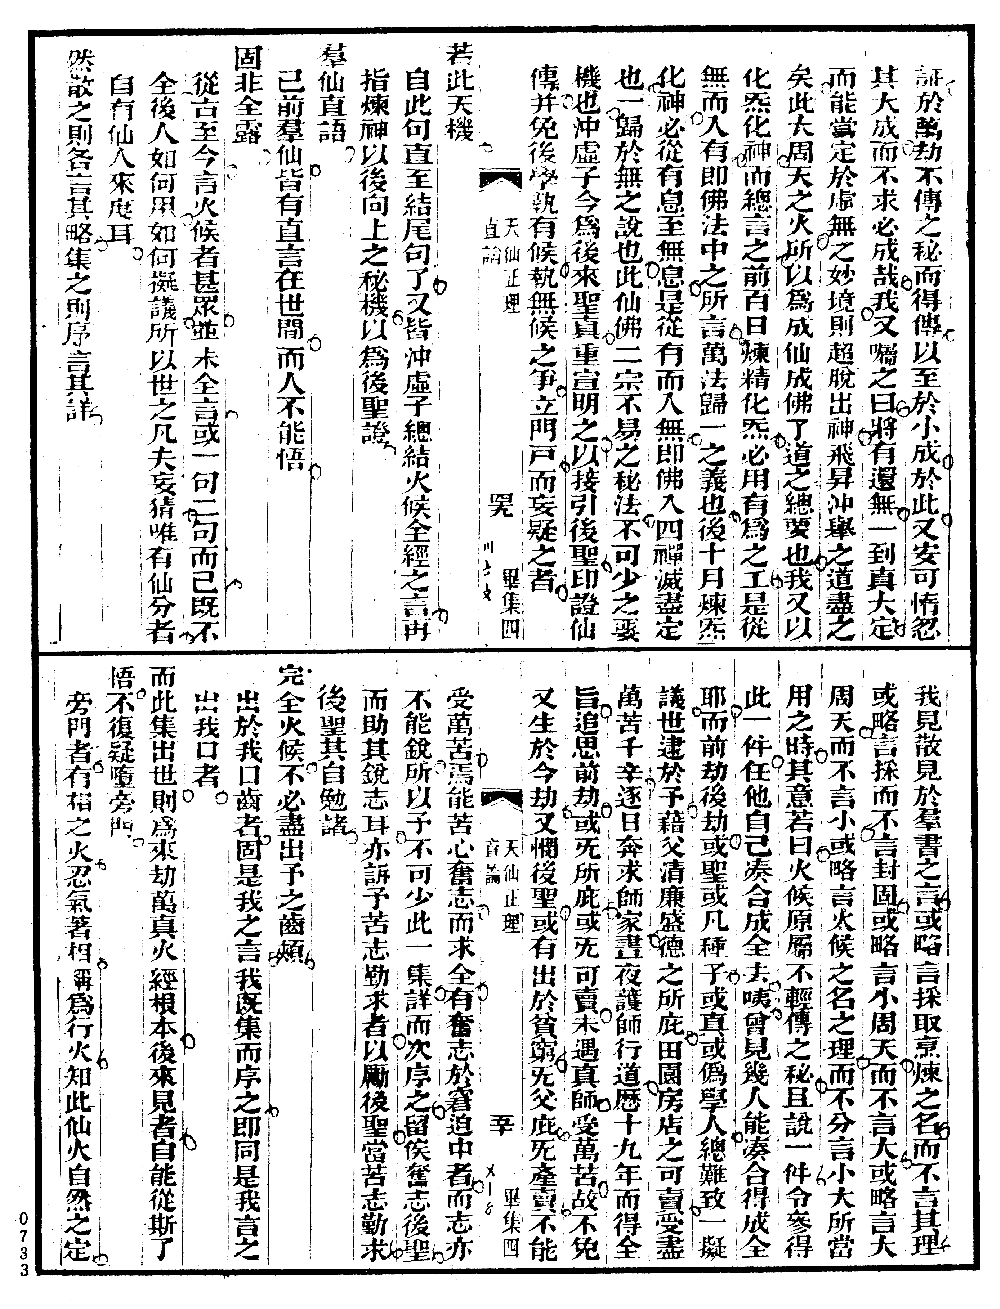 証於萬劫不傳之秘而得傳以至於小成於此又安可惰忽
其大成而不求必成哉我又囑之曰將有還無一到真大定
而能當定於虛無之妙境則超脫出神飛昇沖舉之道盡之
矣此大周天之火所以爲成仙成佛了道之總要也我又以
化炁化神而總言之前百日煉精化炁必用有爲之工是從
無而入有即佛法中之所言萬法歸一之義也後十月煉炁
化神必從有息至無息是從有而入無即佛入四禪滅盡定
也一歸於無之說也此仙佛二宗不易之秘法不可少之要
機也沖虛子今爲後來聖真重宣明之以接引後聖印證仙
傳并免後學執有候執無候之爭立門戸而妄疑之者
天仙正理
直論
畢集四
若此天機
自此句直至結尾句了又皆沖虛子總結火候全經之言再
指煉神以後向上之秘機以爲後聖證
羣仙直語
已前羣仙皆有直言在世間而人不能悟
固非全露
從古至今言火候者甚眾並未全言或一句二句而已既不
全後人如何用如何擬議所以世之凡夫妄猜唯有仙分者
自有仙人來度耳
然散之則各言其略集之則序言其詳
我見散見於羣書之言或略言採取烹煉之名而不言其理
或略言採而不言封固或略言小周天而不言大或略言大
周天而不言小或略言火候之名之理而不分言小大所當
用之時其意若曰火候原屬不輕傳之秘且說一件令參得
此一件任他自己湊合成全去咦曾見幾人能湊合得成全
耶而前劫後劫或聖或凡種子或真或僞學人總難致一擬
議世逮於予藉父清廉盛德之所庇田園房店之可賣受盡
萬苦千辛逐日奔求師家晝夜護師行道歷十九年而得全
旨追思前劫或旡所庇或旡可賣未遇真師受萬苦故不免
又生於今劫又憫後聖或有出於貧窮旡父庇旡產賣不能
天仙正理
直論
畢集四
受萬苦焉能苦心奮志而求全有奮志於窘迫中者而志亦
不能銳所以予不可少此一集詳而次序之留俟奮志後聖
而助其銳志耳亦訴予苦志勤求者以勵後聖當苦志勤求
後聖其自勉諸
完全火候不必盡出予之齒頰
出於我口齒者固是我之言我既集而序之即同是我言之
出我口者
而此集出世則爲來劫萬真火經根本後來見者自能從斯了
悟不復疑墮旁門
旁門者有相之火忍氣著相稱爲行火知此仙火自然之定
0733